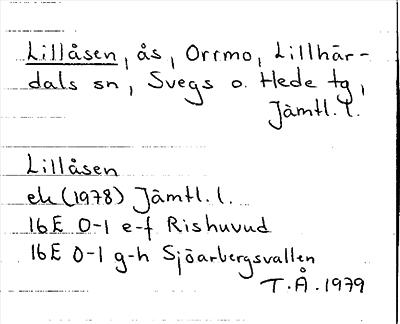 Lillåsen, ås, Orrmo, Lillhär-
dals sn, Svegs o. Hede tg,
Jämtl. l.
Lillåsen
ek (1978) Jämtl. l.
16E 0-1 e-f Rishuvud
16E 0-1 g-h Sjöarbergsvallen
T.Å. 1979